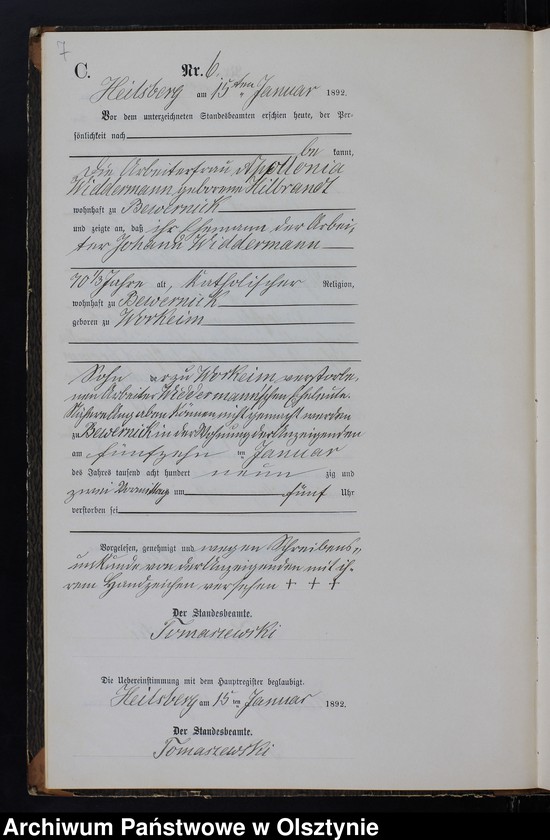 7
C.
Nr. 6.
Heilsberg am 15ten Januar 1892.
Vor dem unterzeichneten Standesbeamten erschien heute, der Per-
sönlichkeit nach
be kannt,
die Arbeiterfrau Apollonia
Widdermann geborene Hilbrandt
wohnhaft zu Bewernick
und zeigte an, daß ihr Ehemann der Arbei-
ter Johann Widdermann
70 1/3 Jahre alt, Katholischer Religion,
wohnhaft zu Bewernick
geboren zu Workeim
Sohn der zu Workeim verstorbe-
nen Arbeiter Widdermann'schen Eheleute.
Nähere Angaben können nicht gemacht werden
zu Bewernick in der Wohnung der Anzeigenden
am fünfzehn ten Januar
des Jahres tausend acht hundert neun zig und
zwei Vormittag um fünf Uhr
verstorben sei
Vorgelesen, genehmigt und wegen Schreibens-
unkunde von der Anzeigenden mit ih-
rem Handzeichen versehen + + +
Der Standesbeamte.
Tomaszewski
Die Uebereinstimmung mit dem Hauptregister beglaubigt.
Heilsberg am 15ten Januar 1892.
Der Standesbeamte.
Tomaszewski
Archiwum Państwowe w Olsztynie